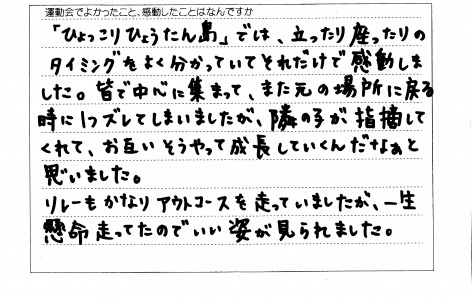 運動会でよかったこと、感動したことはなんですか
「ひょっこりひょうたん島」では、立ったり座ったりの
タイミングをよく分かっていてそれだけで感動しま
した。皆で中心に集まって、また元の場所に戻る
時に1つズレてしまいましたが、隣の子が指摘して
くれて、お互いそうやって成長していくんだなぁと
思いました。
リレーもかなりアウトコースを走っていましたが、一生
懸命走ってたのでいい姿が見られました。